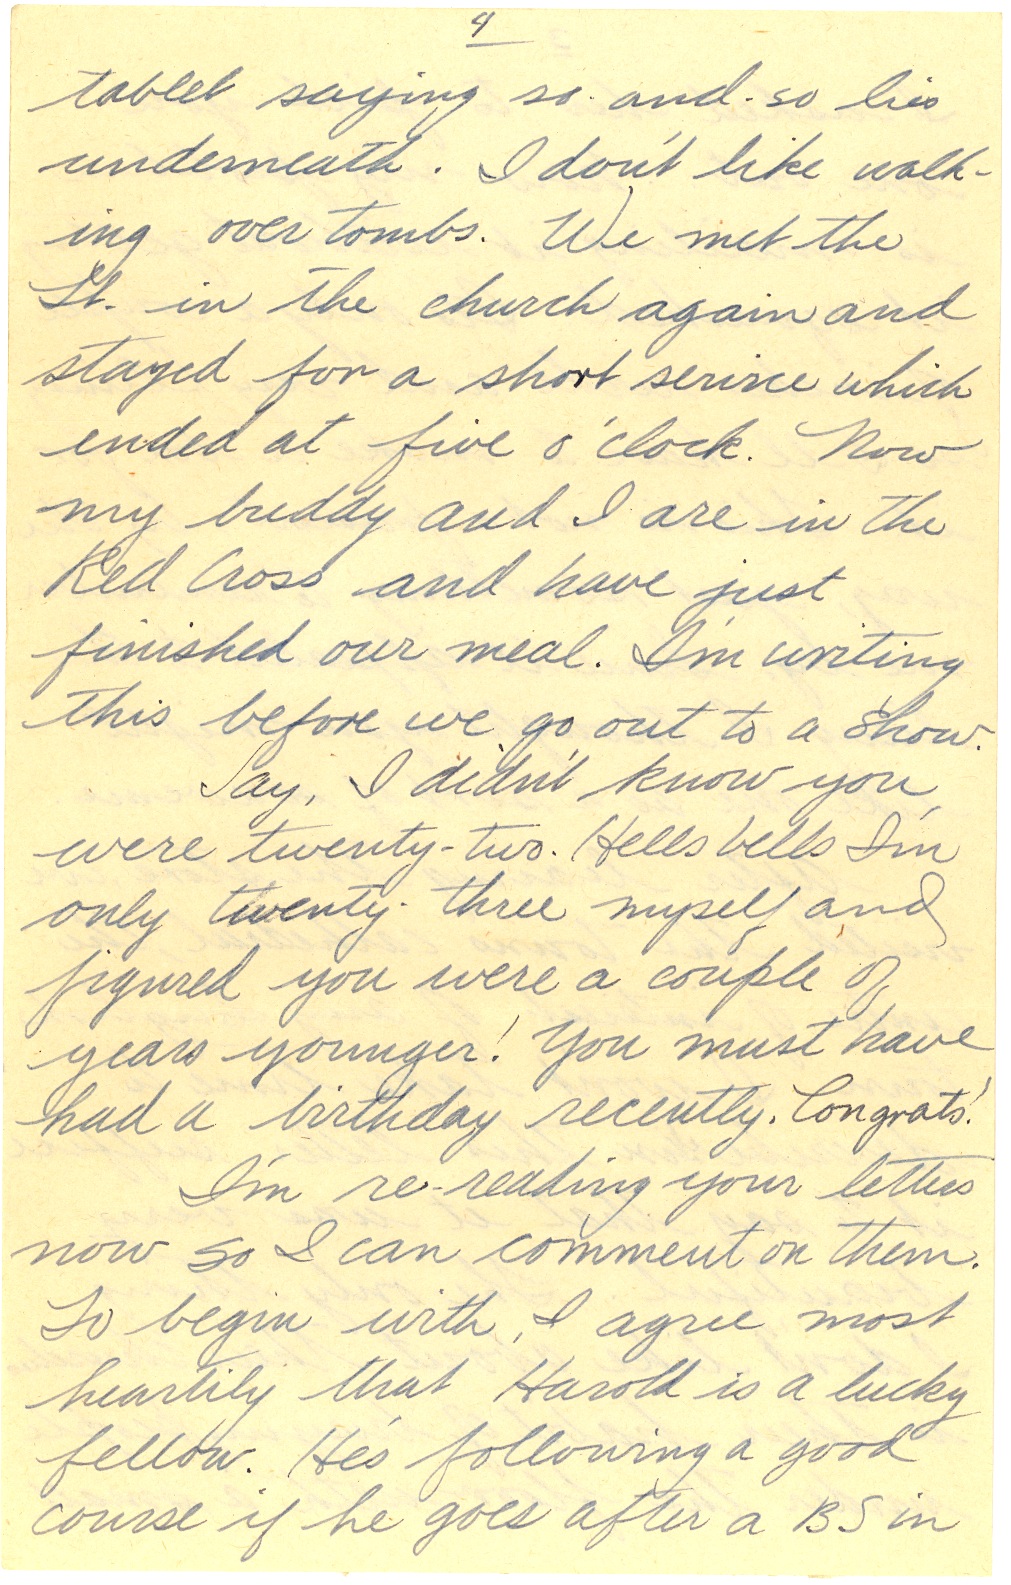 4
tablet saying so-and-so lies
underneath. I don't like walk-
ing over tombs. We met the
Lt. in the church again and
stayed for a short serivce which
ended at five o'clock. Now
my buddy and I are in the
Red Cross and have just
finished our meal. I'm writing
this before we go out to a show.
Say, I didn't know you
were twenty-two. Hells bells I'm
only twenty-three myself and
figured you were a couple of
years younger! You must have
had a birthday recently. Congrats!
I'm re-reading your letters
now so I can comment on them.
To begin with, I agree most
heartily that Harold is a lucky
fellow. He's following a good
course if he goes after a BS in